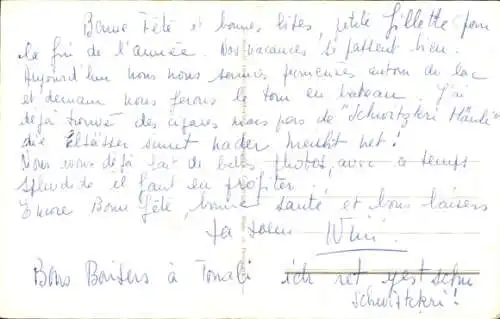 Bonne Fête et bonnes bises, petite Gillette pour
la fin de l'année. Nos vacances se passent bien.
Aujourd'hui nous nous sommes promenés autour du lac
et demain nous ferons le tour en bateau. J'ai
déjà trouvé des cigares mais pas de "Schwitzkri
die Elsässer sinn
Nous avons déjà fait de belles photos, avec ce temps
splendide il faut en profiter.
Encore Bonne fête, bonne santé et bons baisers
Ta soeur
Bons Baisers à ich